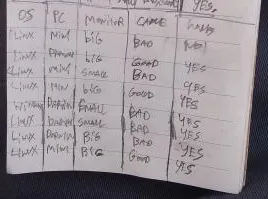 YES
OS PC MONITOR CABLE
LINUX MINI BIG BAD NO!
LINUX DARWIN BIG GOOD YES
LINUX MINI SMALL BAD YES
LINUX MINI BIG GOOD YES
WINDOWS DARWIN SMALL BAD YES
LINUX DARWIN SMALL BAD YES
LINUX DARWIN BIG BAD YES
LINUX MINI BIG GOOD YES